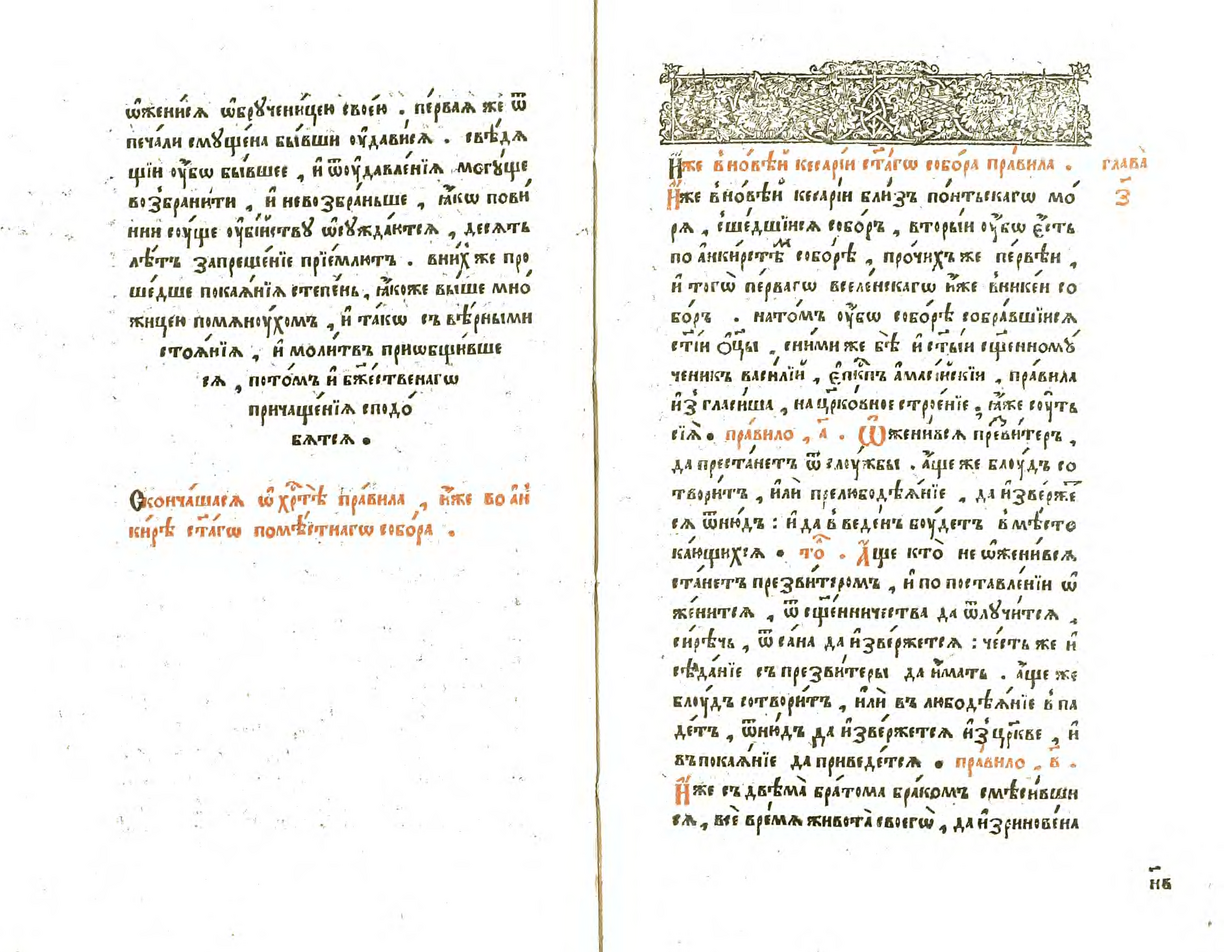 ѡ҆жени́сѧ ѡ҆брꙋче́ницею свое́ю . пе́рваѧ же ѿ
печа́ли смꙋще́на бы́вши оу҆дави́сѧ . свѣ́дѧ
щїи оу҆́бѡ бы́вшее , и҆ ѿоудавле́нїѧ мо́гꙋще
возбрани́ти , и҆ невозбра́ньше , ꙗ҆́кѡ пови́
нни сꙋ́ще оу҆бі́йствꙋ ѡ҆сꙋжда́ютсѧ , де́сѧть
лѣ́тъ запреще́нїе прїе́млютъ . вни́хже про
ше́дше покаѧ́нїѧ степе́нь , ꙗ҆́коже вы́ше мно
жи́цею помѧнꙋ́хомъ , и҆ та́кѡ съ вѣ́рными
стоѧ́нїѧ , и҆ моли́твъ приѡбщи́вше
сѧ , пото́мъ и҆ бж҃е́ственагѡ
причаще́нїѧ сподо́
бѧтсѧ .
Сконча́шасѧ ѡ҆ хрⷭ҇тѣ̀ пра́вила , и҆́же во а҆н
ки́рѣ ст҃а́гѡ помѣ́стнагѡ собо́ра .
И҆́же в но́вѣй кесарі́и ст҃а́гѡ собо́ра пра́вила .
глава̀
з҃
И҆́же в но́вѣй кесарі́и бли́зъ по́нтьскагѡ мо́
рѧ , сше́дшїисѧ собо́ръ , вторы́и оу҆́бѡ є҆́сть
по а҆нки́рстѣⷨ собо́рѣ , про́чихъже пе́рвѣи ,
и҆ тогѡ̀ пе́рвагѡ вселе́нскагѡ и҆́же вникеи со
бо́ръ . на то́мъ оу҆́бѡ собо́рѣ собра́вшїисѧ
ст҃і́и ѻ҆ц҃ы̀ , сни́миже бѣ̀ и҆ ст҃ы́и сщ҃енномꙋ́
ченикъ васи́лїй , є҆пⷭ҇кпъ а҆масі́йскїи , пра́вила
и҆згласи́ша , на цр҃ко́вное строе́нїе , ꙗ҆́же сꙋ́ть
сїѧ̀ . пра́вило , а҃ . Ѡ҆жени́всѧ презви́теръ ,
да преста́нетъ ѿ слꙋ́жбы . а҆́ще же блꙋ́дъ со
твори́тъ , и҆лѝ прелюбодѣѧ́нїе , да и҆зве́рже
сѧ ѿню́дъ : и҆ да в веде́нъ бꙋ́детъ в мѣ́сто
ка́ющихсѧ . то̑ . А҆́ще кто̀ не ѡ҆жени́всѧ
ста́нетъ презви́теромъ , и҆ по поставле́нїи ѡ҆
же́нитсѧ , ѿ сщ҃е́нничества да ѿлꙋчи́тсѧ ,
си́рѣчь , ѿ са́на да и҆зве́ржетсѧ : че́сть же и҆
сѣда́нїе съ презви́теры да и҆́мать . а҆́ще же
блꙋ́дъ сотвори́тъ , и҆лѝ въ любодѣѧ́нїе в па
де́тъ , ѿню́дъ да и҆зве́ржетсѧ и҆з цр҃кве , и҆
въ покаѧ́нїе да приведе́тсѧ . пра́вило , в҃ .
И҆́же съ двѣма̀ бра́тома бра́комъ смѣси́вши
сѧ , всѐ вре́мѧ живота̀ своегѡ̀ , да и҆зринове́на
н҃в